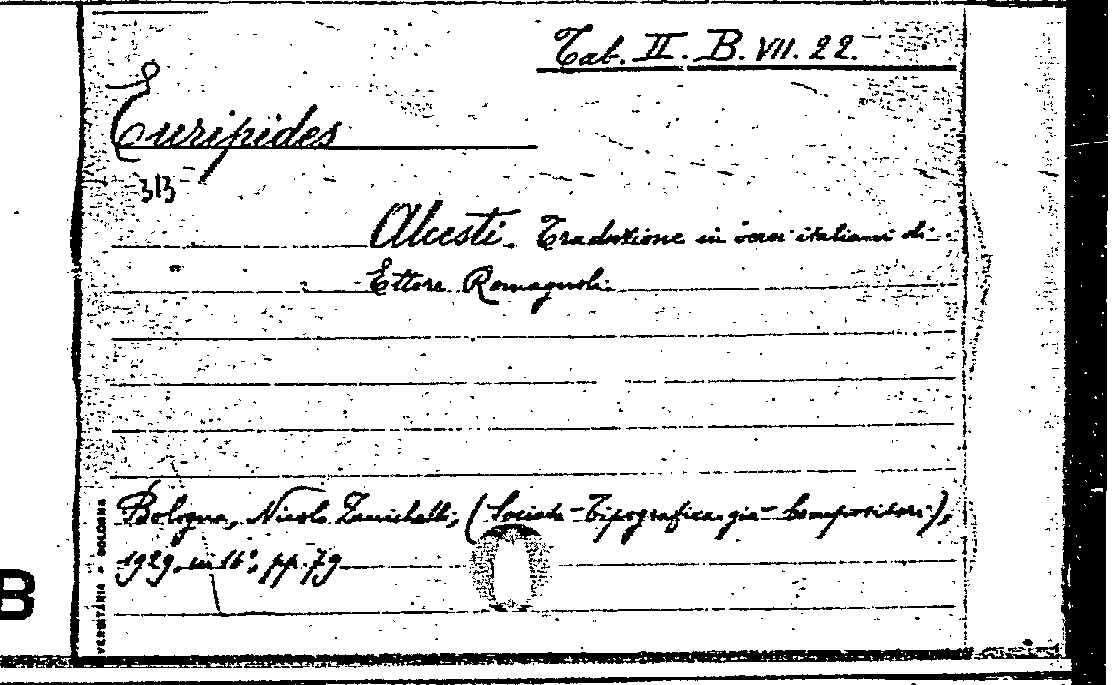 Tab. II. B. VII. 22.
Euripides
313
Alcesti. Traduzione in versi italiani di
Ettore Romagnoli.
Bologna, Nicola Zanichelli, (Società Tipografica già Compositori),
1929, in 16°, pp. 79
B